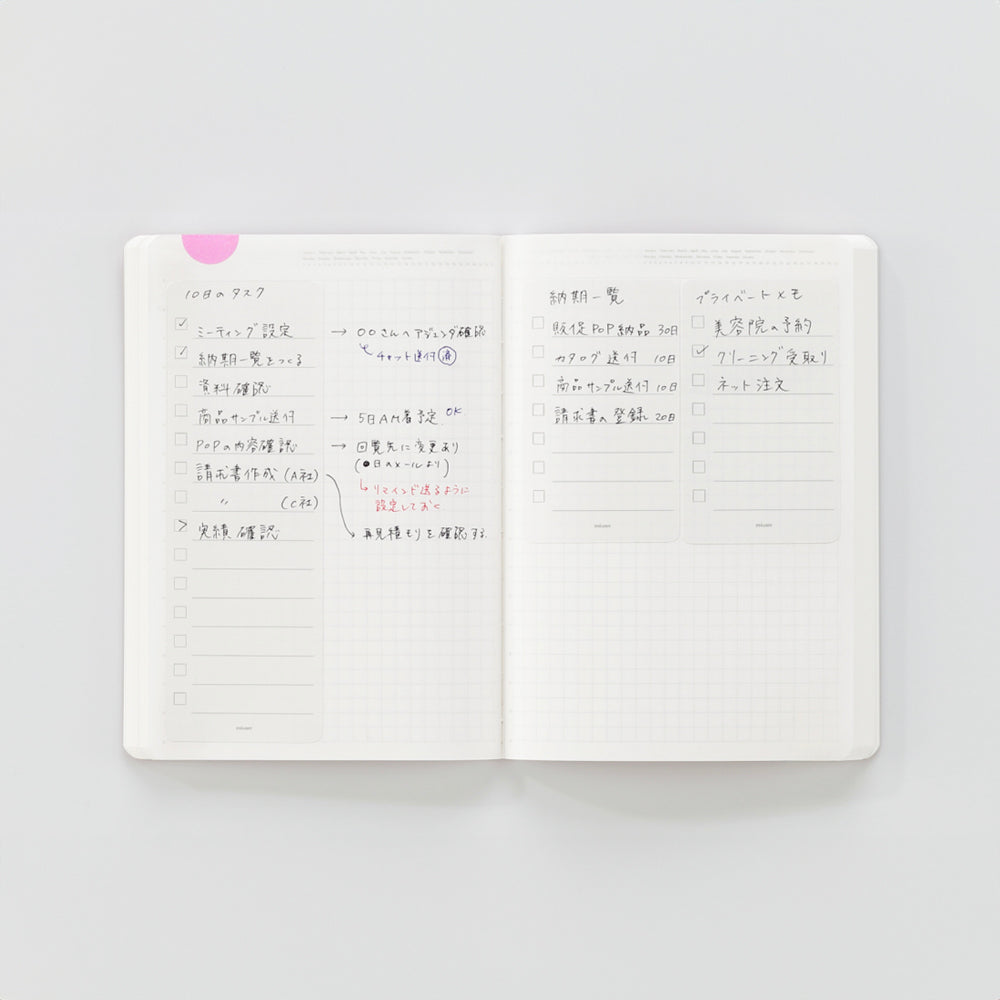 10日のタスク
ミーティング設定 → 〇〇さんへアジェンダ確認
チャット送付 済
納期一覧をつくる
資料確認
商品サンプル送付 → 5日AM着予定. OK
POPの内容確認 → 回覧先に変更あり
(●日のメールより)
リマインド送るように
設定しておく
請求書作成 (A社)
〃 (C社)
再見積もりを確認する.
実績確認
mizuiro
納期一覧
販促POP納品 30日
カタログ送付 10日
商品サンプル送付 10日
請求書の登録 20日
プライベートメモ
美容院の予約
クリーニング受取り
ネット注文